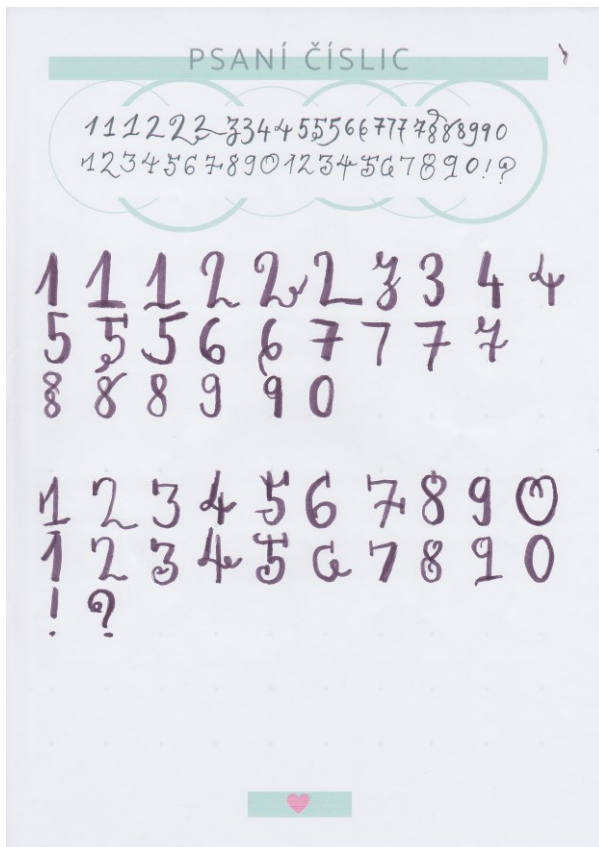 PSANÍ ČÍSLIC
1 1 1 2 2 2 3 3 4 4 5 5 5 6 6 7 7 7 7 8 8 8 9 9 0
1 2 3 4 5 6 7 8 9 0 1 2 3 4 5 6 7 8 9 0 ! ?
1 1 1 2 2 2 3 3 4 4
5 5 5 6 6 7 7 7 7
8 8 8 9 9 0
1 2 3 4 5 6 7 8 9 0
1 2 3 4 5 6 7 8 9 0
! ?